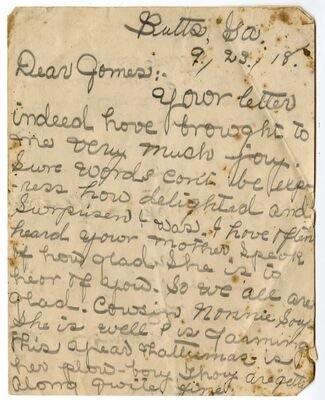 Butts, Ga.
9/23/18.
Dear Gomes:
Your letter
indeed have brought to
me very much joy.
Sure words can't be exp-
ress how delighted and
Surprisen I was. I have often
heard your mother speak
of how glad She is to
hear of you. So we all are
glad. Cousin Nonnie Say
She is well & is farming
this year. is
her plow-boy they are gett
along quite fine.